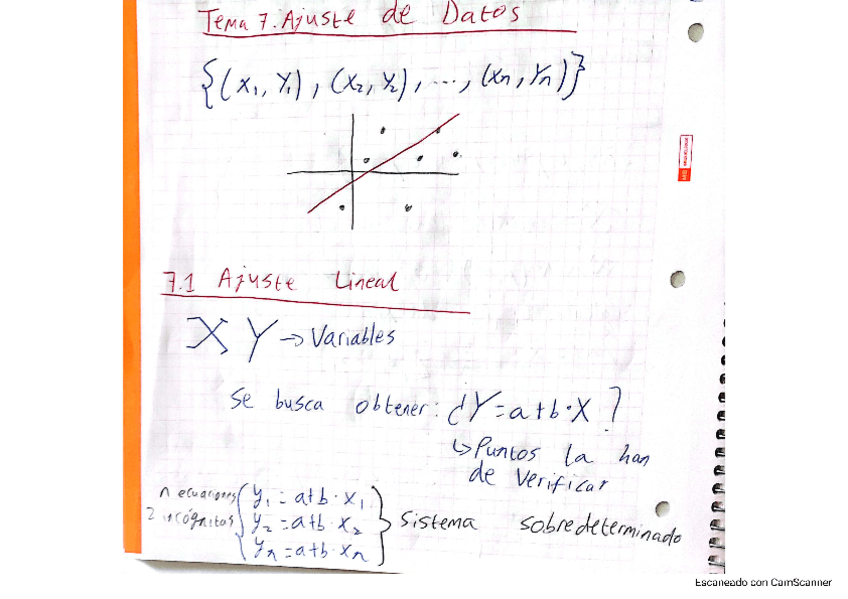 Tema 7. Ajuste de Datos
{(x₁, y₁), (x₂, y₂), ..., (xn, yn)}
7.1 Ajuste Lineal
X Y → Variables
Se busca obtener: ¿Y=a+b·X?
↳ Puntos la han
de Verificar
n ecuaciones
2 incógnitas
y₁=a+b·x₁
y₂=a+b·x₂
yn=a+b·xn
Sistema sobredeterminado
Escaneado con CamScanner